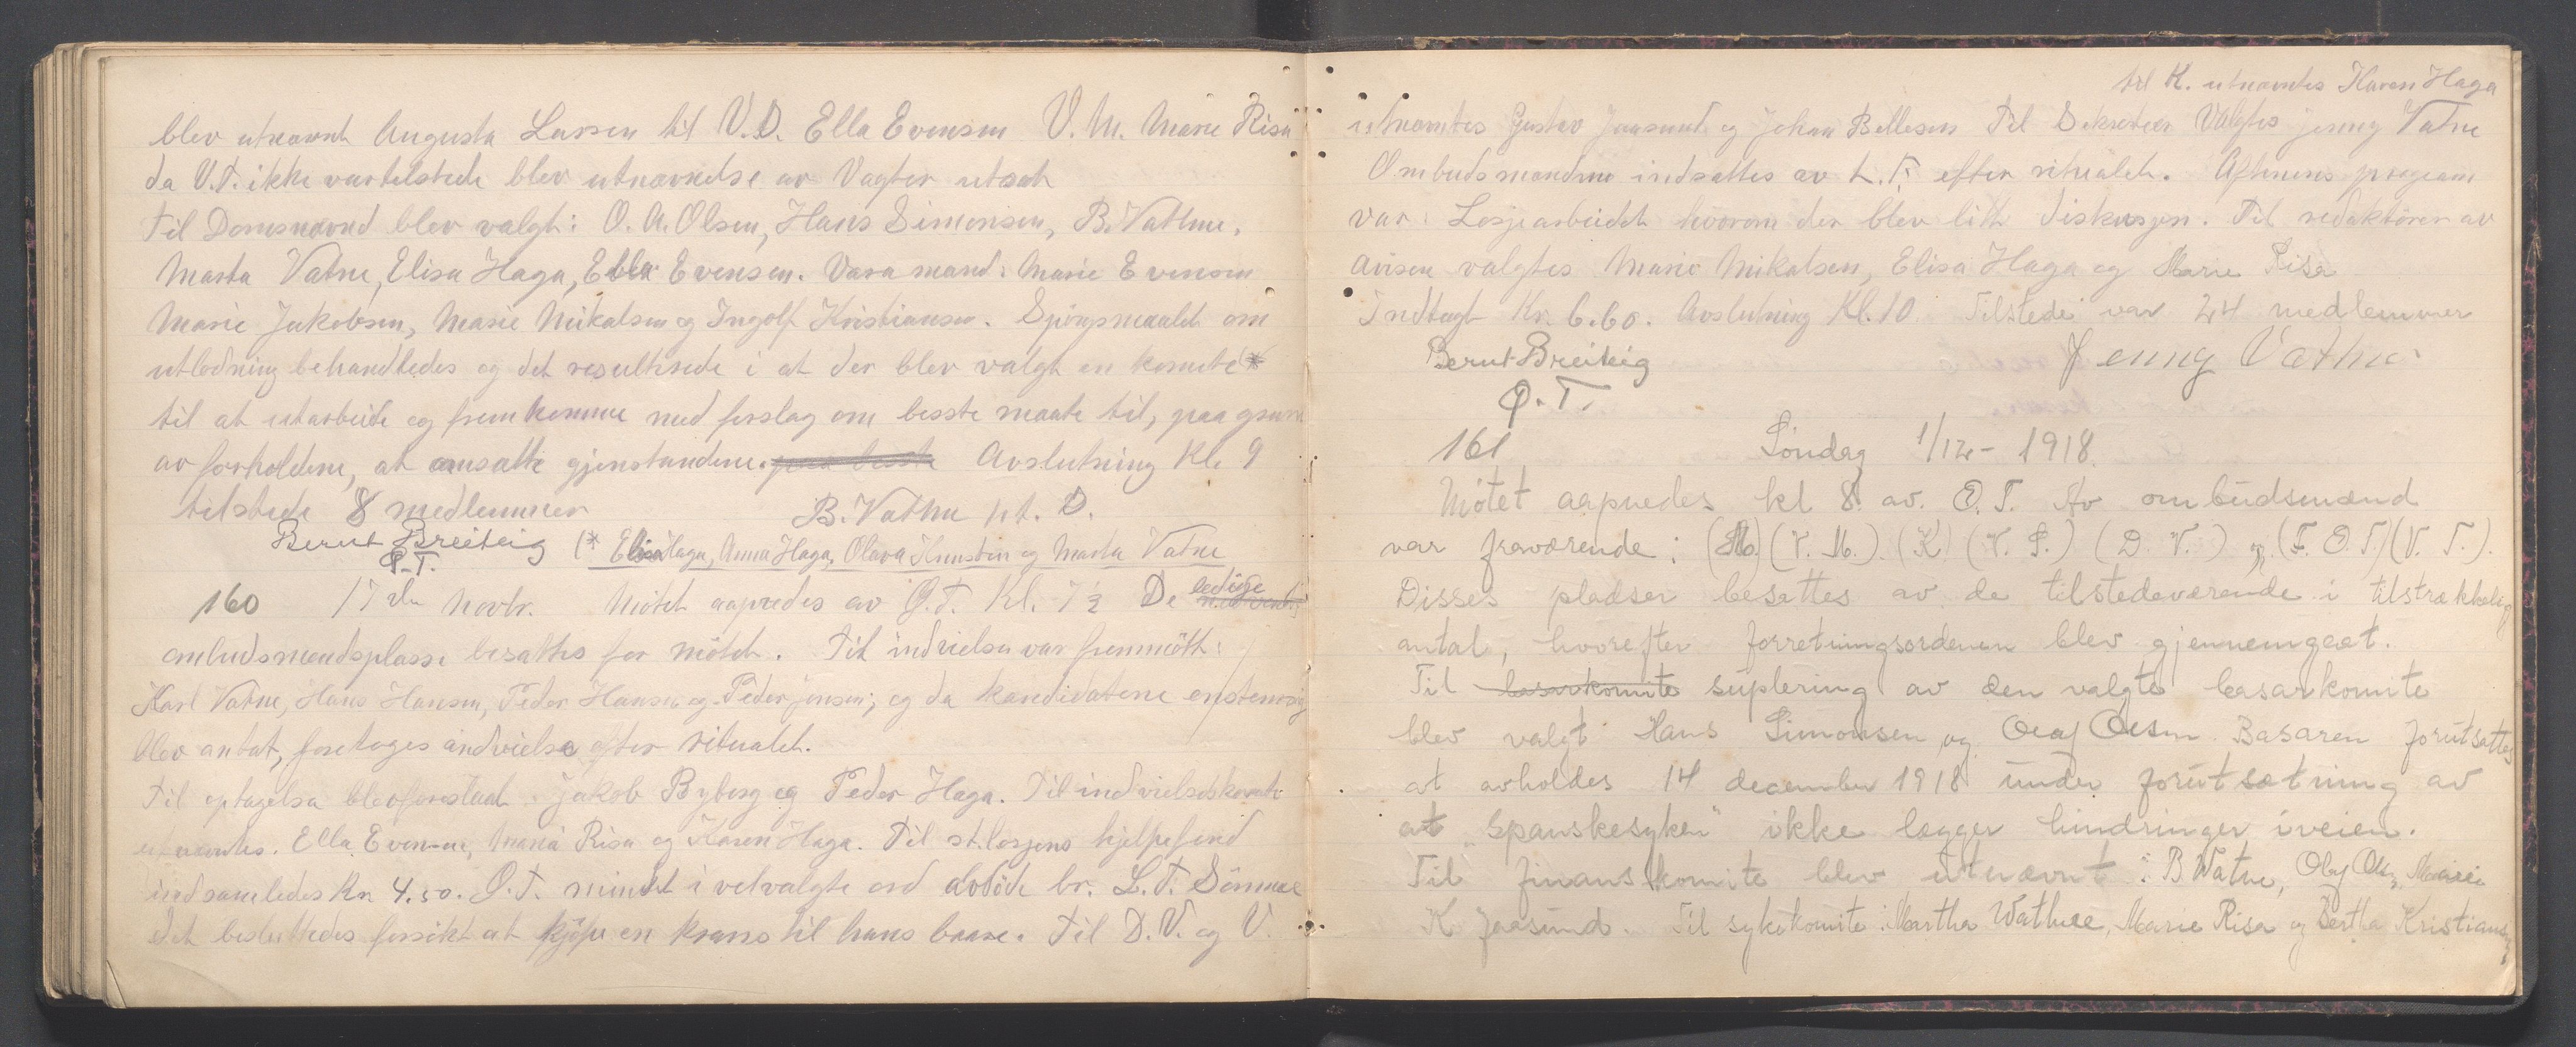 blev utnævnt Augusta Larsen til V.D. Ella Evensen V.M. Marie Risa
da V.T. ikke var tilstede blev utnævnelse av Vagter utsat
Til Domsnævnd blev valgt: O. A. Olsen, Hans Simonsen, B. Vathne,
Marta Vatne, Elisa Haga, Ella Evensen. Vara mænd: Marie Evensen
Marie Jakobsen, Marie Mikalsen og Ingolf Kristiansen. Spörsmaalet om
utlodning behandledes og det resulterede i at der blev valgt en komite *
til at utarbeide og fremkomme med forslag om besste maate til, paa grunn
av forholdene, at omsætte gjenstandene. paa besste Avslutning Kl. 9
tilstede 8 medlemmer B. Vathne p.t. D.
Bernt Breiteig (* Elisa Haga, Anna Haga, Olava Knutsen og Marta Vatne
O.T.
160 17de Novbr. Mötet aapnedes av O.T. Kl. 7½ De ledige
ombudsmændsplasse besattes for mötet. Til indvielse var fremmött:
Karl Vatne, Hans Hansen, Peder Hansen og Peder Jensen; og da kandidatene enstemmig
blev antat, foretoges indvielse efter ritualet.
Til optagelse blev forestaat Jakob Byberg og Peder Haga. Til indvielseskomite
utnævntes. Ella Evensen, Maria Risa og Karen Haga. Til st. losjens hjelpefond
indsamledes Kr 4.50. O.T. mindet i velvalgte ord avdöde br. L.T. Sömme
det besluttedes forsökt at kjöpe en krans til hans baare. Til D.V. og V.
til K. utnævntes Karen Haga
utnævntes Gustav Jaasund og Johan Bellesen Til Sekretær Valgtes jenny Vatne
Ombudsmændene indsattes av L.T. efter ritualet. Aftenens program
var: Losjearbeidet hvorom der blev litt diskusjon. Til redaktörer av
avisen valgtes Marie Mikalsen, Elisa Haga og Marie Risa
Indtægt Kr. 6.60. Avslutning Kl. 10 Tilstede var 24 medlemmer
Bernt Breiteig Jenny Vathne
O.T.
161 Söndag 1/12 - 1918.
Mötet aapnedes kl 8 av. O.T. Av ombudsmænd
var fraværende: (M.) (V. M.). (K) (V. S.) (D. V.) og (F. O.T.) (V. T.).
Disses pladser besattes av de tilstedeværende i tilstrækkelig
antal, hvorefter forretningsordenen blev gjennemgaat.
Til basarkomite suplering av den valgte basarkomite
blev valgt Hans Simonsen og Olaf Olsen. Basaren forutsattes
at avholdes 14 december 1918 under forutsætning av
at "Spanskesyken" ikke lægger hindringer iveien.
Til finanskomite blev utnævnt: B Watne, Olaf Olsen, Marie
K Jaasund. Til sykekomite: Martha Wathne, Marie Risa og Bertha Kristiansen